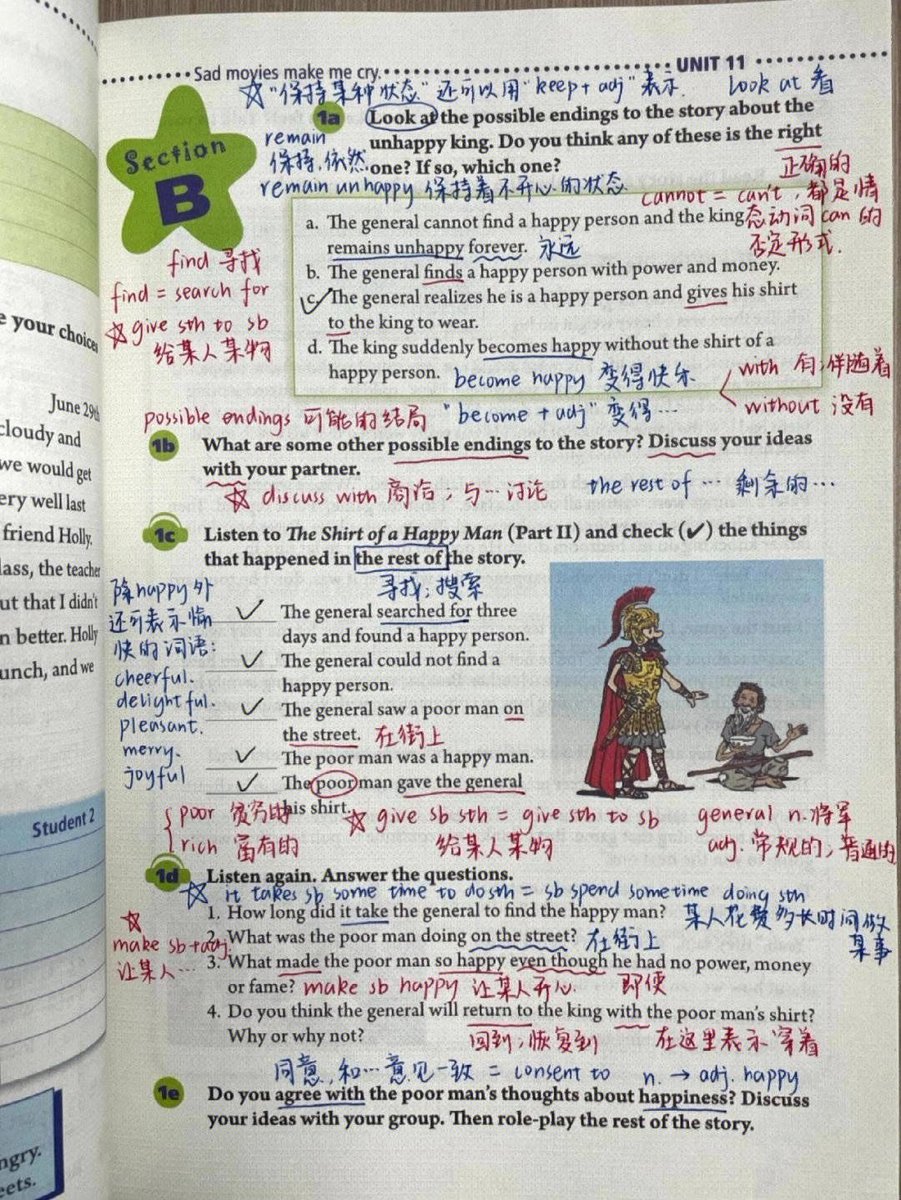 Sad movies make me cry.
UNIT 11
☆ "保持某种状态" 还可以用 "keep + adj" 表示.
look at 看
Section
B
1a Look at the possible endings to the story about the
unhappy king. Do you think any of these is the right
one? If so, which one?
remain
保持, 依然
正确的
remain unhappy 保持着不开心的状态
cannot = can't, 都是情
态动词 can 的
否定形式.
a. The general cannot find a happy person and the king
remains unhappy forever. 永远
b. The general finds a happy person with power and money.
✓ c. The general realizes he is a happy person and gives his shirt
to the king to wear.
d. The king suddenly becomes happy without the shirt of a
happy person.
find 寻找
find = search for
☆ give sth to sb
给某人某物
become happy 变得快乐
with 有; 伴随着
without 没有
possible endings 可能的结局
"become + adj" 变得…
1b What are some other possible endings to the story? Discuss your ideas
with your partner.
☆ discuss with 商洽; 与…讨论
the rest of … 剩余的…
1c Listen to The Shirt of a Happy Man (Part II) and check (✓) the things
that happened in the rest of the story.
寻找; 搜索
除 happy 外
还可表示愉
快的词语:
cheerful.
delightful.
pleasant.
merry.
joyful
✓ The general searched for three
days and found a happy person.
✓ The general could not find a
happy person.
✓ The general saw a poor man on
the street. 在街上
✓ The poor man was a happy man.
✓ The poor man gave the general
his shirt.
poor 贫穷的
rich 富有的
☆ give sb sth = give sth to sb
给某人某物
general n. 将军
adj. 常规的; 普通的
1d Listen again. Answer the questions.
☆ it takes sb some time to do sth = sb spend sometime doing sth
某人花费多长时间做
某事
1. How long did it take the general to find the happy man?
2. What was the poor man doing on the street? 在街上
3. What made the poor man so happy even though he had no power, money
or fame? make sb happy 让某人开心. 即使
☆
make sb + adj.
让某人…
4. Do you think the general will return to the king with the poor man's shirt?
Why or why not?
回到; 恢复到
在这里表示穿着
同意, 和…意见一致 = consent to
n. → adj. happy
1e Do you agree with the poor man's thoughts about happiness? Discuss
your ideas with your group. Then role-play the rest of the story.
e your choices
June 29th
cloudy and
we would get
ery well last
friend Holly.
lass, the teacher
ut that I didn't
n better. Holly
unch, and we
Student 2
ngry.
eets.